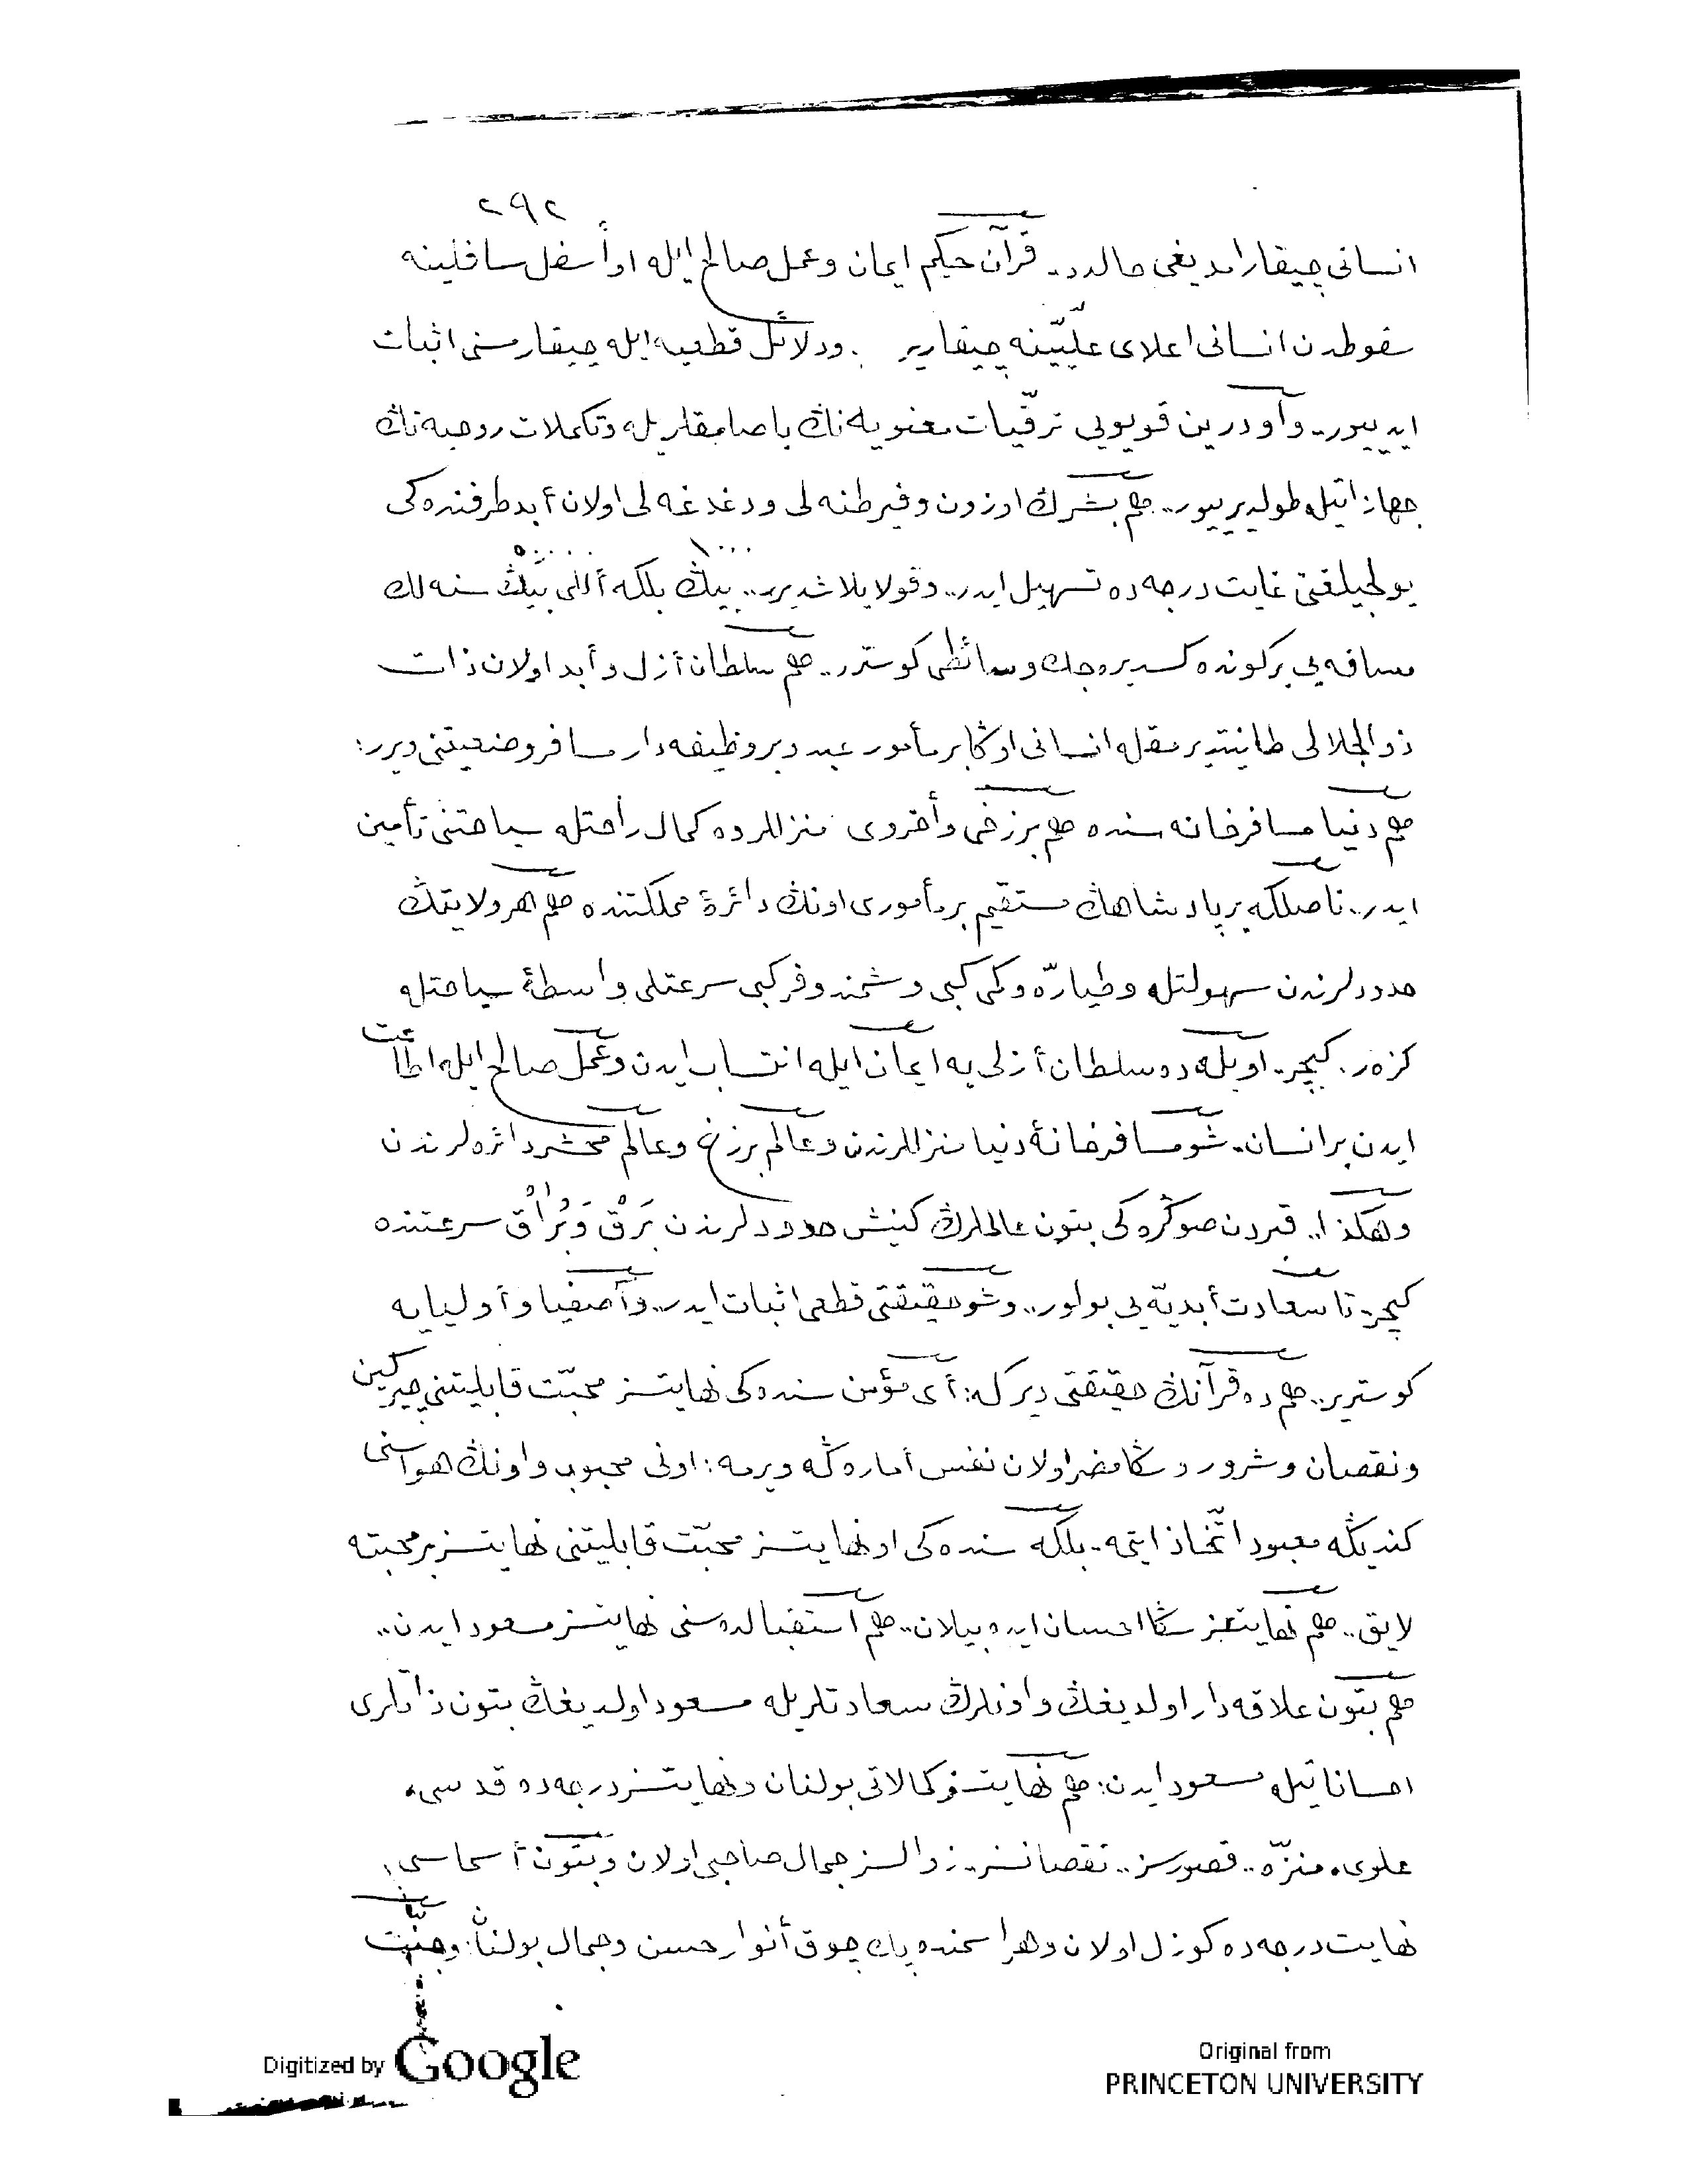 ٢٩٢
انسانى چيقارامديغى حالده.. قرآن حكيم ايمان وعمل صالح ايله او أسفل سافلينه
سقوطدن انسانى اعلاى علّيّينه چيقارير. ودلائل قطعيه ايله چيقارمسنى اثبات
ايدييور.. و او درين قويويى ترقّيات معنويه نڭ باصامقلريله وتكملات روحيه نڭ
جهازاتيله طولديرييور.. هم بشرڭ اوزون وفيرطنه لى ودغدغه لى اولان أبد طرفنده كى
يولجيلغنى غايت درجه ده تسهيل ايدر.. وقولايلاشديرير.. بيڭ بلكه أللى بيڭ سنه لك
١٠٠٠ ٥٠٠٠٠
مسافه يى بركونده كسديره جك وسائطى كوسترر.. هم سلطان أزل و أبد اولان ذات
ذوالجلالى طانيتديرمقله انسانى اوڭا بر مأمور عبد و بر وظيفه دار مسافر وضعيتنى ويرر:
هم دنيا مسافرخانه سنده هم برزخى و أخروى منزللرده كمال راحتله سياحتنى تأمين
ايدر.. ناصلكه بر پادشاهڭ مستقيم بر مأمورى اونڭ دائرۀ مملكتنده هم هر ولايتڭ
حدودلرندن سهولتله وطيارّه وكمى كبى وشمندوفر كبى سرعتلى واسطۀ سياحتله
كزر. كيچر.. اويله ده سلطان أزلى يه ايمان ايله انتساب ايدن وعمل صالح ايله اطاعت
ايدن بر انسان.. شو مسافرخانۀ دنيا منزللرندن وعالم برزخ وعالم محشر دائره لرندن
وهكذا.. قبردن صوڭره كى بتون عالملرڭ كنيش حدودلرندن بَرْقْ وَ بُرْاقْ سرعتنده
كيچر.. تا سعادت أبديّه يى بولور.. وشو حقيقتى قطعى اثبات ايدر.. و أصفيا و أوليايه
كوسترير.. هم ده قرآنڭ حقيقتى ديركه: أى مؤمن سنده كى نهايتسز محبّت قابليتنى چيركين
ونقصان وشرور و سڭا مضر اولان نفس أماره ڭه ويرمه: اونى محبوب و اونڭ هواسنى
كنديڭه معبود اتّخاذ ايتمه.. بلكه سنده كى او نهايتسز محبّت قابليتنى نهايتسز بر محبته
لايق.. هم نهايتسز سڭا احسان ايده بيلان.. هم استقبالده سنى نهايتسز مسعود ايدن..
هم بتون علاقه دار اولديغڭ و اونلرڭ سعادتلريله مسعود اولديغڭ بتون ذاتلرى
احساناتيله مسعود ايدن: هم نهايتسز كمالاتى بولنان ونهايتسز درجه ده قدسى،
علوى، منزّه.. قصورسز.. نقصانسز.. زوالسز جمال صاحبى اولان وبتون أسماسى،
نهايت درجه ده كوزل اولان و هر اسمنده پك چوق أنوار حسن وجمال بولنان: وجنّت
Digitized by Google
Original from
PRINCETON UNIVERSITY